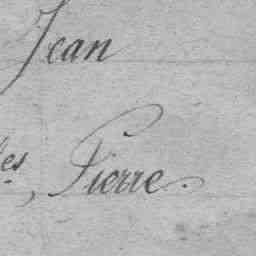 Jean
es, Pierre.